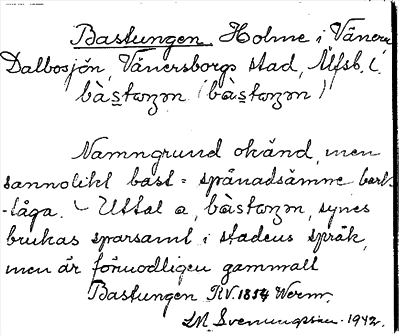 Bastungen Holme i Vänern
Dalbosjön, Vänersborgs stad, Älfsb. l.
bàstωŋən (bàstωŋən)
Namngrund okänd, men
sannolikt bast = spånadsämne bark
-tåga. Uttal a, bàstωŋən, synes
brukas sparsamt i stadens språk,
men är förmodligen gammalt
Bastungen RV. 1854 Werm.
LM. Svenungsson. 1942.